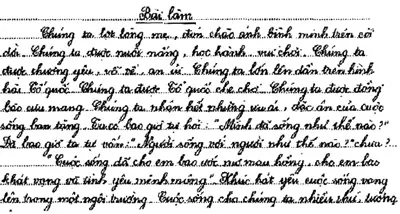 Bài làm
Chúng ta lọt lòng mẹ, đón chào ánh bình minh trên cõi
đời. Chúng ta được nuôi nấng, học hành vui chơi. Chúng ta
được thương yêu, vỗ về, an ủi. Chúng ta lớn lên dần trên hình
hài Tổ quốc. Chúng ta được Tổ quốc che chở. Chúng ta được đồng
bào cưu mang. Chúng ta nhận hết những ưu ái, đặc ân của cuộc
sống ban tặng. Ta có bao giờ tự hỏi: "Mình đã sống như thế nào?"
Đã bao giờ ta tự vấn: "Người sống với người như thế nào?" chưa?...
"Cuộc sống đã cho em bao ước mơ màu hồng, cho em bao
khát vọng và tình yêu mênh mông". Khúc hát yêu cuộc sống vang
lên trong một ngôi trường. Cuộc sống cho chúng ta nhiều thứ, tưởng